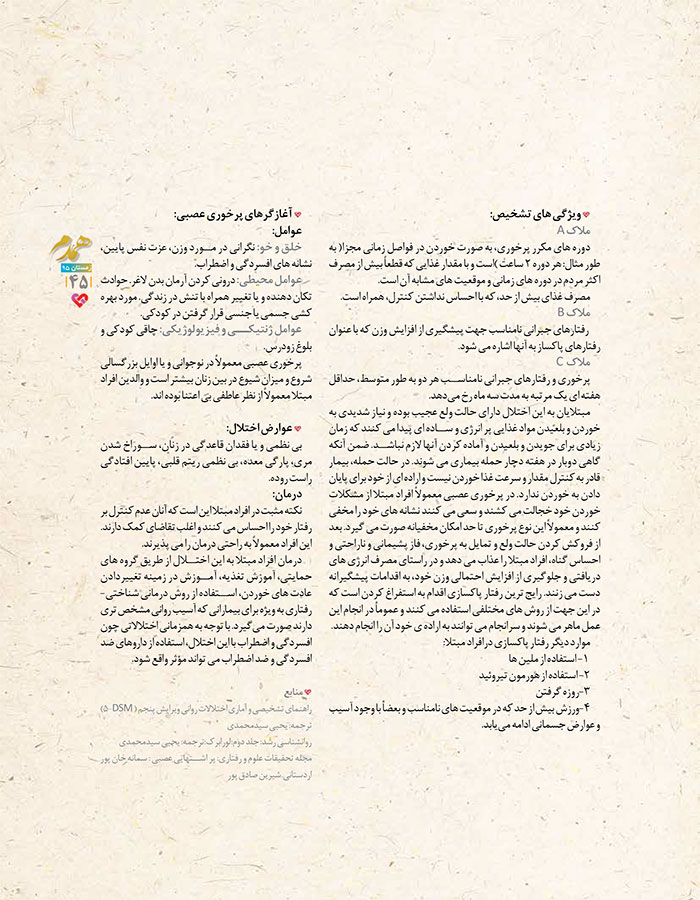 ویژگی های تشخیص:
ملاک A
دوره های مکرر پرخوری، به صورت خوردن در فواصل زمانی مجزا( به
طور مثال: هر دوره ۲ ساعت )است و با مقدار غذایی که قطعاً بیش از مصرف
اکثر مردم در دوره های زمانی و موقعیت های مشابه آن است.
مصرف غذای بیش از حد، که با احساس نداشتن کنترل، همراه است.
ملاک B
رفتارهای جبرانی نامناسب جهت پیشگیری از افزایش وزن که با عنوان
رفتارهای پاکساز به آنها اشاره می شود.
ملاک C
پرخوری و رفتارهای جبرانی نامناسب هر دو به طور متوسط، حداقل
هفته ای یک مرتبه به مدت سه ماه رخ می‌دهد.
مبتلایان به این اختلال دارای حالت ولع عجیب بوده و نیاز شدیدی به
خوردن و بلعیدن مواد غذایی پر انرژی و ساده ای پیدا می کنند که زمان
زیادی برای جویدن و بلعیدن و آماده کردن آنها لازم نباشد. ضمن آنکه
گاهی دوبار در هفته دچار حمله بیماری می شوند. در حالت حمله، بیمار
قادر به کنترل مقدار و سرعت غذا خوردن نیست و اراده ای از خود برای پایان
دادن به خوردن ندارد. در پرخوری عصبی معمولاً افراد مبتلا از مشکلات
خوردن خود خجالت می کشند و سعی می کنند نشانه های خود را مخفی
کنند و معمولاً این نوع پرخوری تا حد امکان مخفیانه صورت می گیرد. بعد
از فروکش کردن حالت ولع و تمایل به پرخوری، فاز پشیمانی و ناراحتی و
احساس گناه، افراد مبتلا را عذاب می دهد و در راستای مصرف انرژی های
دریافتی و جلوگیری از افزایش احتمالی وزن خود، به اقدامات پیشگیرانه
دست می زنند. رایج ترین رفتار پاکسازی اقدام به استفراغ کردن است که
در این جهت از روش های مختلفی استفاده می کنند و عموماً در انجام این
عمل ماهر می شوند و سرانجام می توانند به اراده ی خود آن را انجام دهند.
موارد دیگر رفتار پاکسازی در افراد مبتلا:
۱-استفاده از ملین ها
۲-استفاده از هورمون تیروئید
۳-روزه گرفتن
۴-ورزش بیش از حد که در موقعیت های نامناسب و بعضاً با وجود آسیب
و عوارض جسمانی ادامه می یابد.
آغازگرهای پرخوری عصبی:
عوامل:
خلق و خو: نگرانی در مورد وزن، عزت نفس پایین،
نشانه های افسردگی و اضطراب.
عوامل محیطی: درونی کردن آرمان بدن لاغر. حوادث
تکان دهنده و یا تغییر همراه با تنش در زندگی، مورد بهره
کشی جسمی یا جنسی قرار گرفتن در کودکی.
عوامل ژنتیکی و فیزیولوژیکی: چاقی کودکی و
بلوغ زودرس.
پرخوری عصبی معمولاً در نوجوانی و یا اوایل بزرگسالی
شروع و میزان شیوع در بین زنان بیشتر است و والدین افراد
مبتلا معمولاً از نظر عاطفی بی اعتنا بوده اند.
عوارض اختلال:
بی نظمی و یا فقدان قاعدگی در زنان، سوراخ شدن
مری، پارگی معده، بی نظمی ریتم قلبی، پایین افتادگی
راست روده.
درمان:
نکته مثبت در افراد مبتلا این است که آنان عدم کنترل بر
رفتار خود را احساس می کنند و اغلب تقاضای کمک دارند.
این افراد معمولاً به راحتی درمان را می پذیرند.
درمان افراد مبتلا به این اختلال از طریق گروه های
حمایتی، آموزش تغذیه، آموزش در زمینه تغییر دادن
عادت های خوردن، استفاده از روش درمانی شناختی-
رفتاری به ویژه برای بیمارانی که آسیب روانی مشخص تری
دارند صورت می گیرد. با توجه به همزمانی اختلالاتی چون
افسردگی و اضطراب با این اختلال، استفاده از داروهای ضد
افسردگی و ضد اضطراب می تواند مؤثر واقع شود.
منابع
راهنمای تشخیصی و آماری اختلالات روانی ویرایش پنجم (DSM-۵)
ترجمه: یحیی سیدمحمدی
روانشناسی رشد: جلد دوم: لورابرک: ترجمه: یحیی سیدمحمدی
مجله تحقیقات علوم و رفتاری: پر اشتهایی عصبی : سمانه خان پور
اردستانی، شیرین صادق پور
همدم
زمستان ۹۵
۴۵